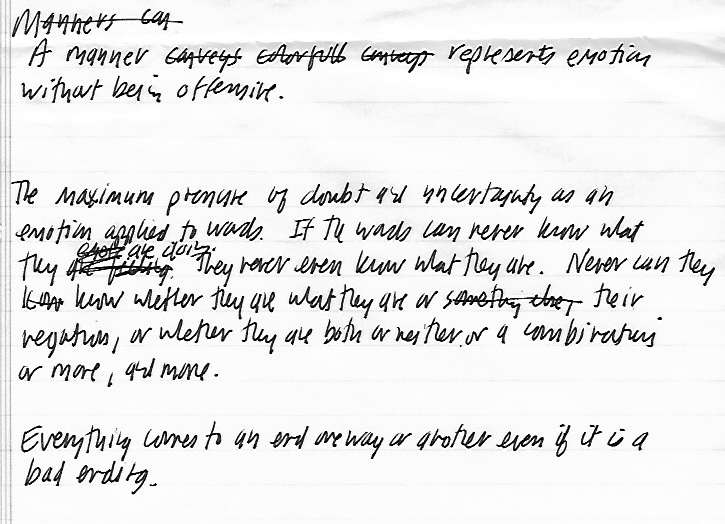 Manners can
A manner conveys colorfull conveys represents emotion
without being offensive.
The maximum pressure of doubt and uncertainty as an
emotion applied to words. If the words can never know what
they are doing. They never even know what they are. Never can they
know whether they are what they are or something else, their
negations, or whether they are both or neither or a combinations
or more, and more.
Everything comes to an end one way or another even if it is a
bad ending.